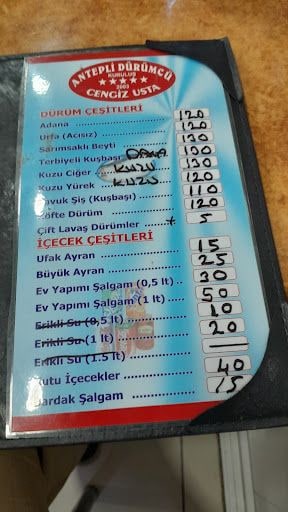 ANTEPLİ DÜRÜMCÜ
KURULUŞ
★★★★★
2003
CENGİZ USTA
DÜRÜM ÇEŞİTLERİ
Adana ........ 120
Urfa (Acısız) ........ 120
Sarımsaklı Beyti ........ 130
Terbiyeli Kuşbaşı DANA 130
Kuzu Ciğer ... KUZU 130
Kuzu Yürek ... KUZU 120
Tavuk Şiş (Kuşbaşı) ........ 110
Köfte Dürüm ........ 120
Çift Lavaş Dürümler ... + 5
İÇECEK ÇEŞİTLERİ
Ufak Ayran ........ 15
Büyük Ayran ........ 25
Ev Yapımı Şalgam (0,5 lt) .. 30
Ev Yapımı Şalgam (1 lt) .... 50
Erikli Su (0,5 lt) ........ 10
Erikli Su (1 lt) ........ 20
Erikli Su (1.5 lt) ........ —
Kutu İçecekler ........ 40
Bardak Şalgam ........ 15